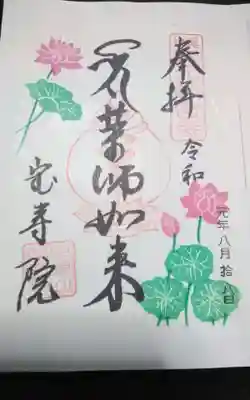 奉拝
令和
元年八月拾八日
薬師如来
宝寿院